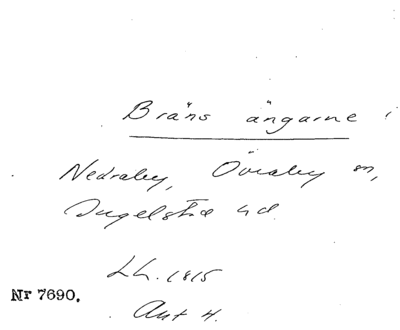 Bräns ängarne i
Nedraby, Övraby sn,
Ingelstad hd.
Lh. 1815
Nr 7690.
Akt 4.